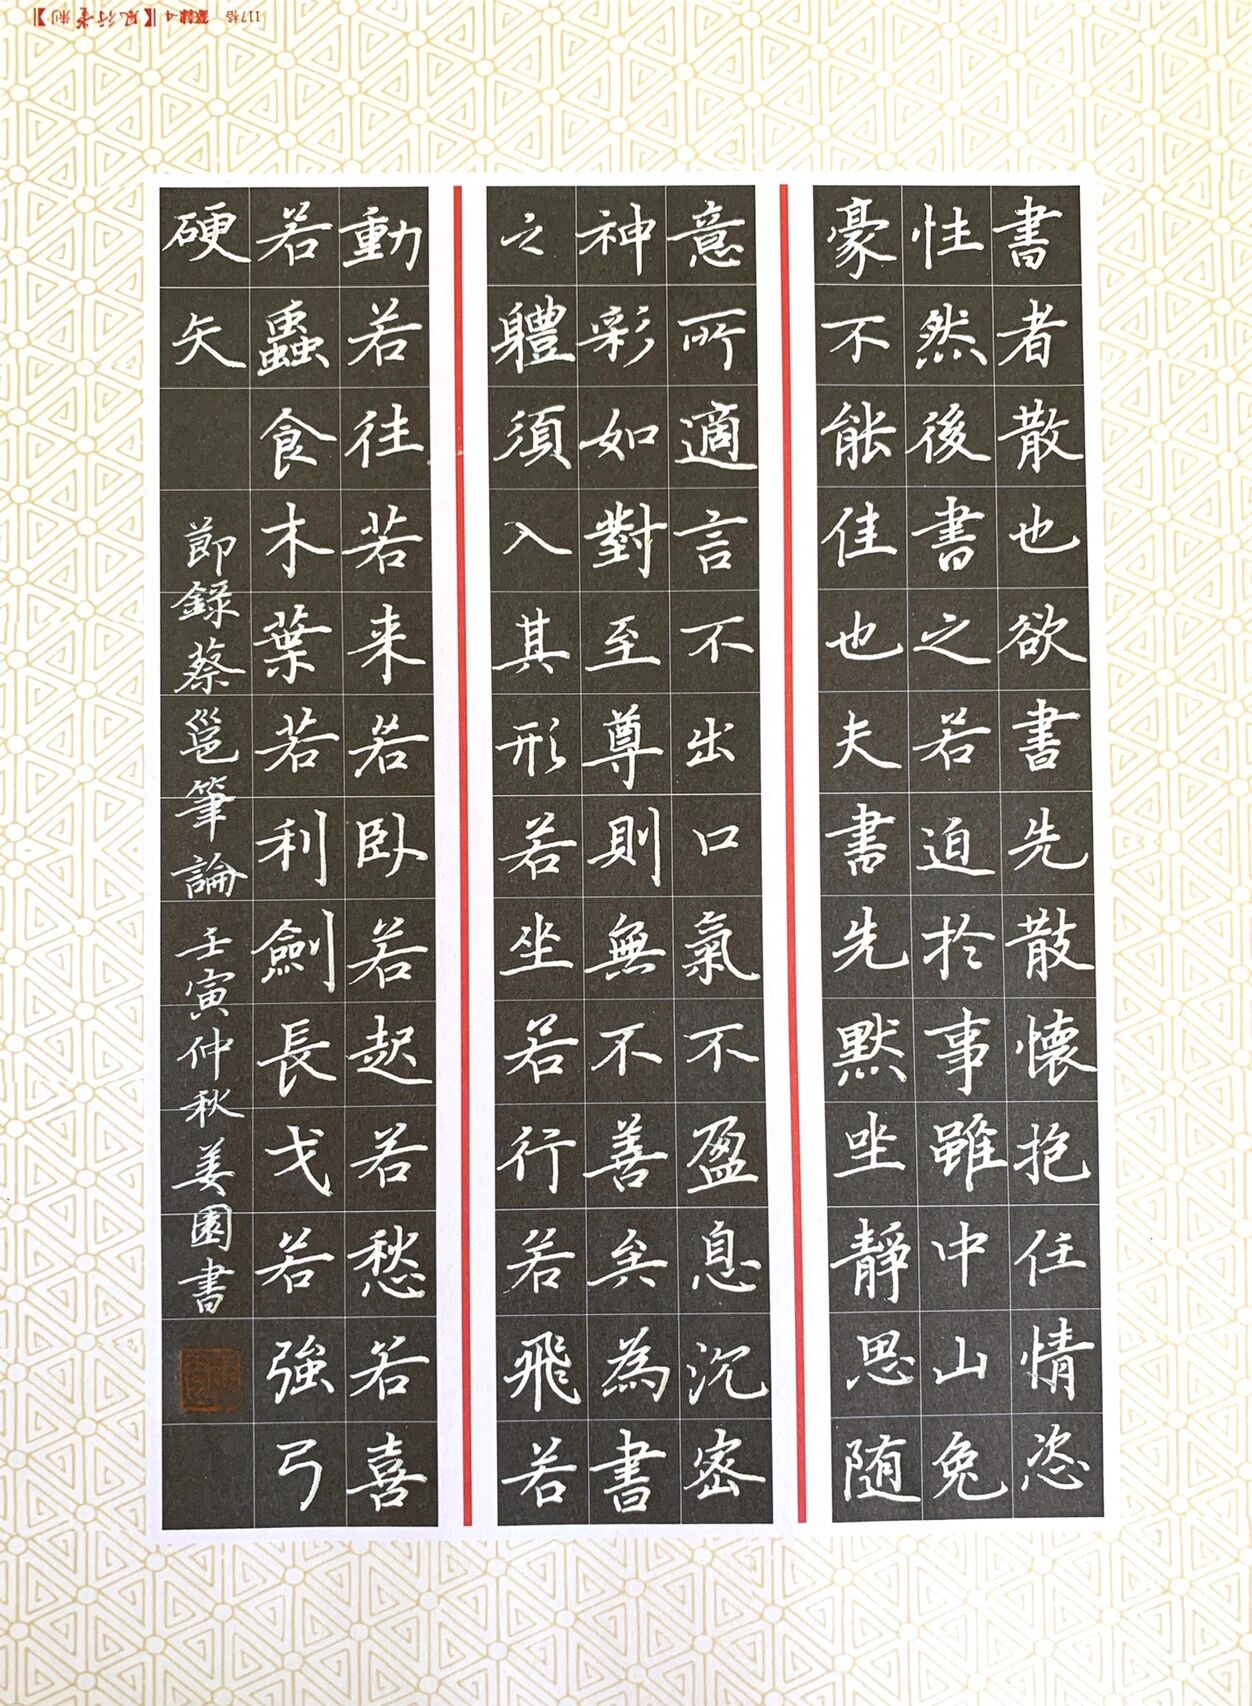 書者散也欲書先散懷抱任情恣
性然後書之若迫於事雖中山兔
豪不能佳也夫書先默坐靜思随
意所適言不出口氣不盈息沉密
神彩如對至尊則無不善矣為書
之體須入其形若坐若行若飛若
動若往若来若卧若起若愁若喜
若蟲食木葉若利劍長戈若強弓
硬矢
節錄蔡邕筆論 壬寅仲秋姜園書
117格